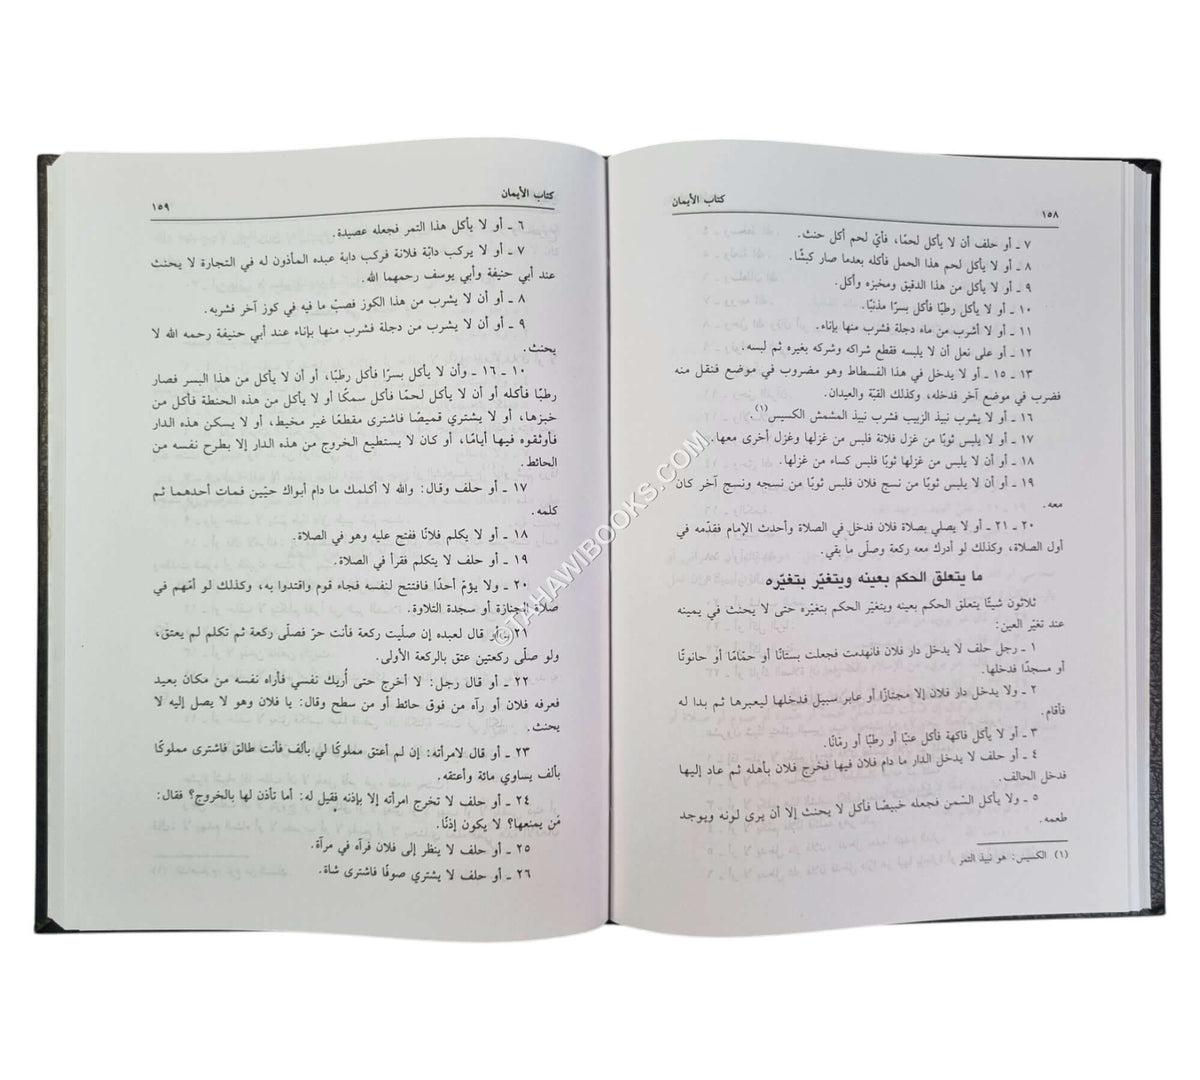 ١٥٨
كتاب الأيمان
٧ ـ أو حلف أن لا يأكل لحمًا، فأيّ لحم أكل حنث.
٨ ـ أو لا يأكل لحم هذا الحمل فأكله بعدما صار كبشًا.
٩ ـ أو لا يأكل من هذا الدقيق ومخبزه وأكل.
١٠ ـ أو لا يأكل رطبًا فأكل بسرًا مذنبًا.
١١ ـ أو لا أشرب من ماء دجلة فشرب منها بإناء.
١٢ ـ أو على نعل أن لا يلبسه فقطع شراكه وشركه بغيره ثم لبسه.
١٣ ـ ١٥ ـ أو لا يدخل في هذا الفسطاط وهو مضروب في موضع فنقل منه
فضرب في موضع آخر فدخله، وكذلك القبّة والعيدان.
١٦ ـ أو لا يشرب نبيذ الزبيب فشرب نبيذ المشمش الكسيس(١).
١٧ ـ أو لا يلبس ثوبًا من غزل فلانة فلبس من غزلها وغزل أخرى معها.
١٨ ـ أو أن لا يلبس من غزلها ثوبًا فلبس كساء من غزلها.
١٩ ـ أو لا يلبس ثوبًا من نسج فلان فلبس ثوبًا من نسجه ونسج آخر كان
معه.
٢٠ ـ ٢١ ـ أو لا يصلي بصلاة فلان فدخل في الصلاة وأحدث الإمام فقدّمه في
أول الصلاة، وكذلك لو أدرك معه ركعة وصلّى ما بقي.
ما يتعلق الحكم بعينه ويتغيّر بتغيّره
ثلاثون شيئًا يتعلق الحكم بعينه ويتغير الحكم بتغيّره حتى لا يحنث في يمينه
عند تغيّر العين:
١ ـ رجل حلف لا يدخل دار فلان فانهدمت فجعلت بستانًا أو حمّامًا أو حانوتًا
أو مسجدًا فدخلها.
٢ ـ ولا يدخل دار فلان إلا مجتازًا أو عابر سبيل فدخلها ليعبرها ثم بدا له
فأقام.
٣ ـ أو لا يأكل فاكهة فأكل عنبًا أو رطبًا أو رمّانًا.
٤ ـ أو حلف لا يدخل الدار ما دام فلان فيها فخرج فلان بأهله ثم عاد إليها
فدخل الحالف.
٥ ـ ولا يأكل السّمن فجعله خبيصًا فأكل لا يحنث إلا أن يرى لونه ويوجد
طعمه.
(١) الكسيس: هو نبيذ التمر
كتاب الأيمان
١٥٩
٦ ـ أو لا يأكل هذا التمر فجعله عصيدة.
٧ ـ أو لا يركب دابّة فلانة فركب دابة عبده المأذون له في التجارة لا يحنث
عند أبي حنيفة وأبي يوسف رحمهما الله.
٨ ـ أو أن لا يشرب من هذا الكوز فصبّ ما فيه في كوز آخر فشربه.
٩ ـ أو أن لا يشرب من دجلة فشرب منها بإناء عند أبي حنيفة رحمه الله لا
يحنث.
١٠ ـ ١٦ ـ وأن لا يأكل بسرًا فأكل رطبًا، أو أن لا يأكل من هذا البسر فصار
رطبًا فأكله أو أن لا يأكل لحمًا فأكل سمكًا أو لا يأكل من هذه الحنطة فأكل من
خبزها، أو لا يشتري قميصًا فاشترى مقطعًا غير مخيط، أو لا يسكن هذه الدار
فأوثقوه فيها أيامًا، أو كان لا يستطيع الخروج من هذه الدار إلا بطرح نفسه من
الحائط.
١٧ ـ أو حلف وقال: والله لا أكلمك ما دام أبواك حيّين فمات أحدهما ثم
كلمه.
١٨ ـ أو لا يكلم فلانًا ففتح عليه وهو في الصلاة.
١٩ ـ أو حلف لا يتكلم فقرأ في الصلاة.
٢٠ ـ ولا يؤمّ أحدًا فافتتح لنفسه فجاء قوم واقتدوا به، وكذلك لو أمّهم في
صلاة الجنازة أو سجدة التلاوة.
٢١ ـ أو قال لعبده إن صلّيت ركعة فأنت حرّ فصلّى ركعة ثم تكلم لم يعتق،
ولو صلّى ركعتين عتق بالركعة الأولى.
٢٢ ـ أو قال رجل: لا أخرج حتى أُريك نفسي فأراه نفسه من مكان بعيد
فعرفه فلان أو رآه من فوق حائط أو من سطح وقال: يا فلان وهو لا يصل إليه لا
يحنث.
٢٣ ـ أو قال لامرأته: إن لم أعتق مملوكًا لي بألف فأنت طالق فاشترى مملوكًا
بألف يساوي مائة وأعتقه.
٢٤ ـ أو حلف لا تخرج امرأته إلا بإذنه فقيل له: أما تأذن لها بالخروج؟ فقال:
مَن يمنعها؟ لا يكون إذنًا.
٢٥ ـ أو حلف لا ينظر إلى فلان فرآه في مرآة.
٢٦ ـ أو حلف لا يشتري صوفًا فاشترى شاة.
©TAHAWIBOOKS.COM